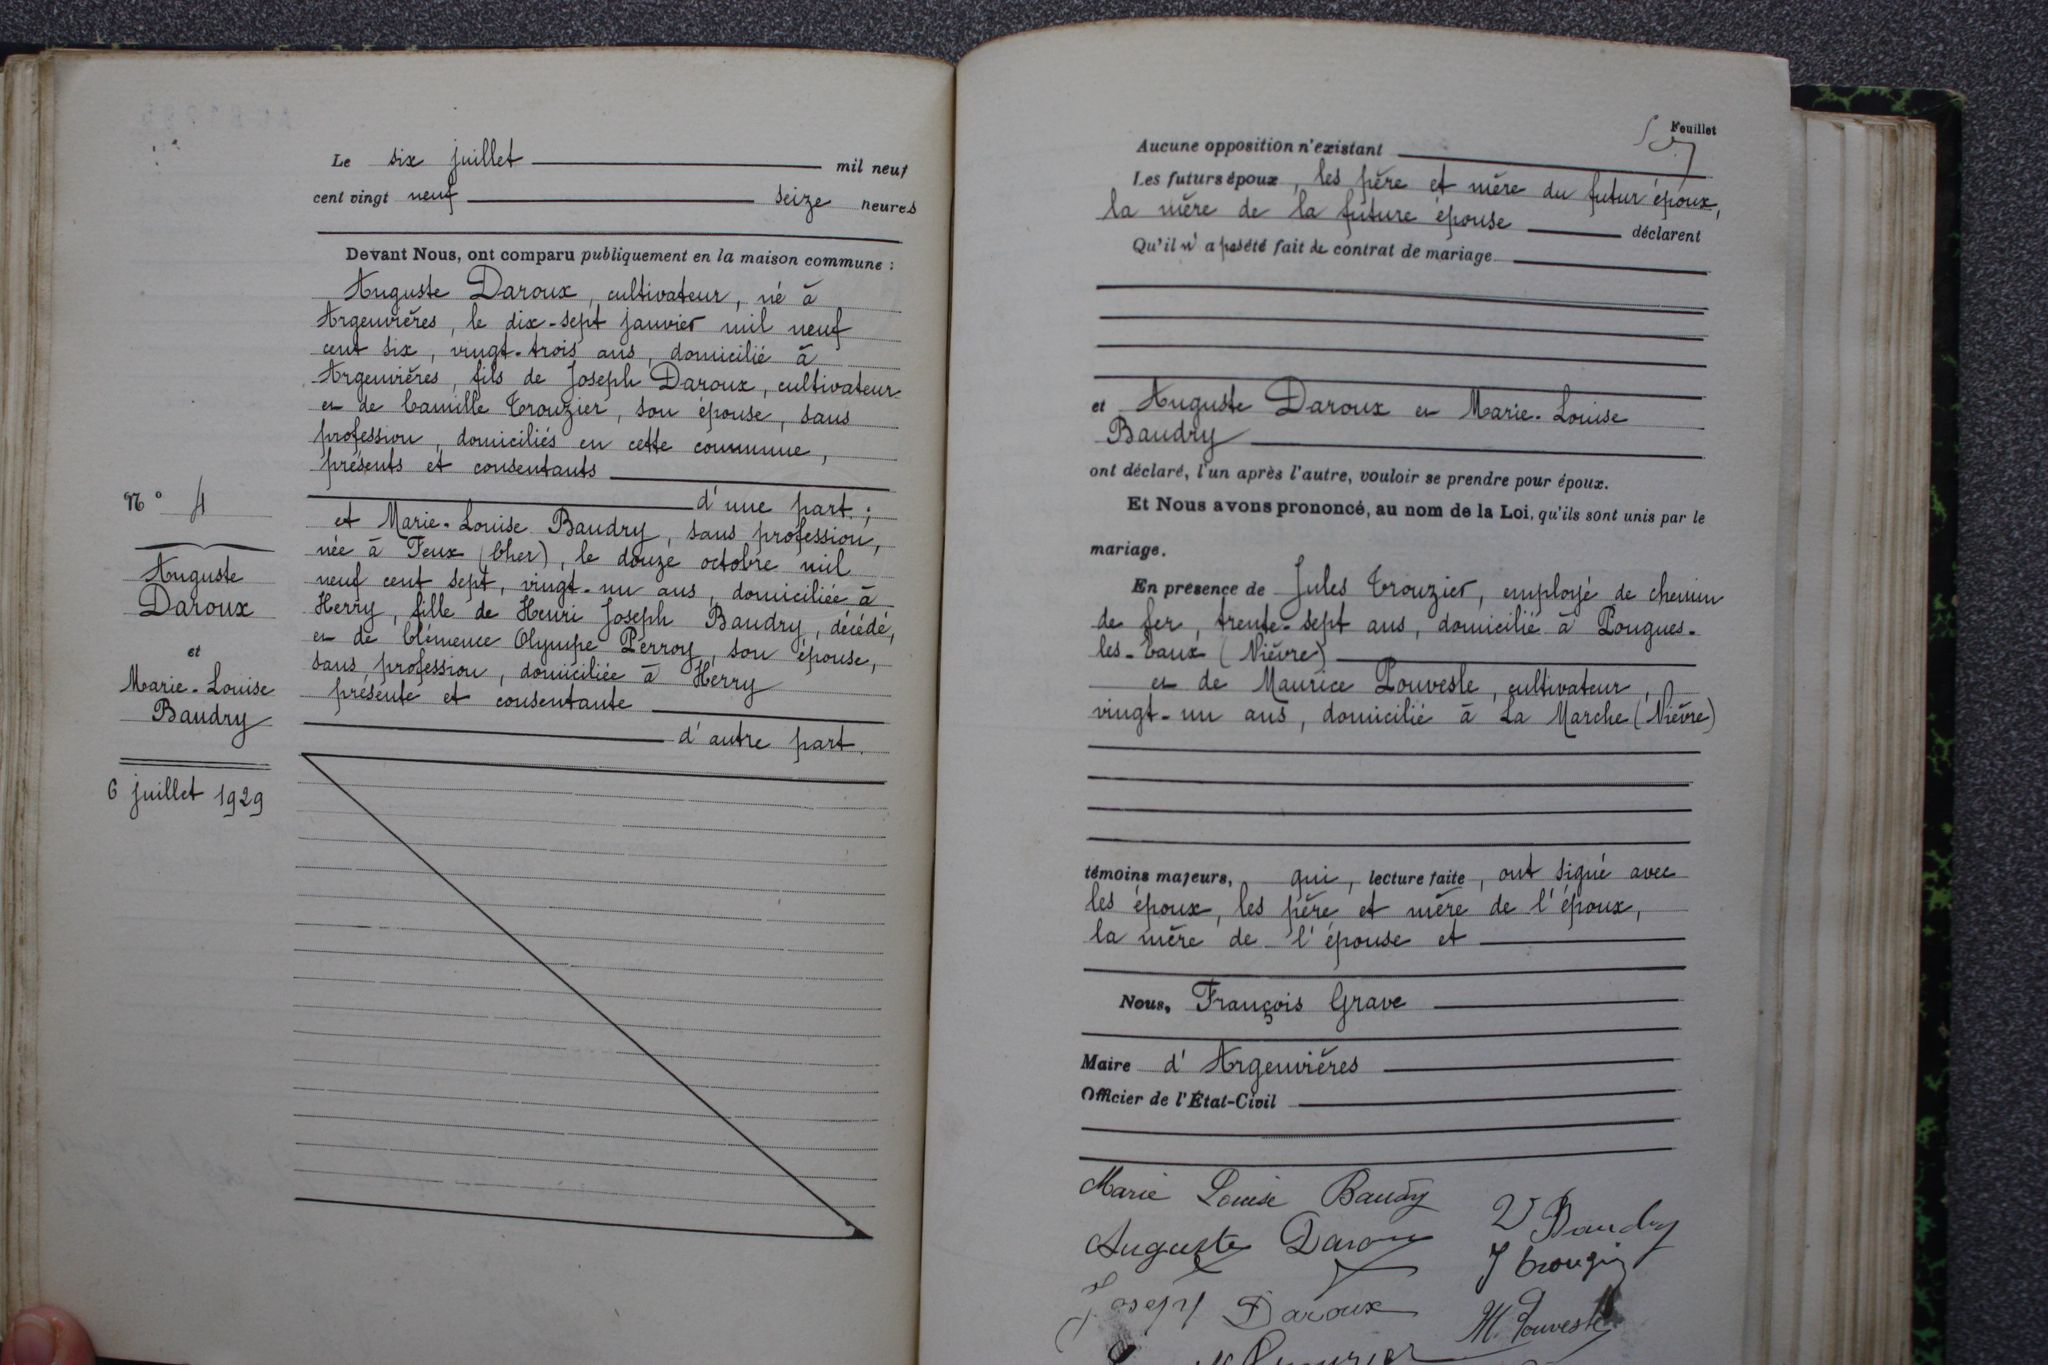 Le six juillet mil neuf
cent vingt neuf seize heures
Devant Nous, ont comparu publiquement en la maison commune :
Auguste Daroux, cultivateur, né à
Argenvières, le dix-sept janvier mil neuf
cent six, vingt-trois ans, domicilié à
Argenvières, fils de Joseph Daroux, cultivateur
et de Camille Trouzier, son épouse, sans
profession, domiciliés en cette commune,
présents et consentants
d'une part ;
et Marie-Louise Baudry, sans profession,
née à Feux (Cher), le douze octobre mil
neuf cent sept, vingt-un ans, domiciliée à
Herry, fille de Henri Joseph Baudry, décédé,
et de Clémence Olympe Perroy, son épouse,
sans profession, domiciliée à Herry
présente et consentante
d'autre part.
N° 4
Auguste
Daroux
et
Marie-Louise
Baudry
6 juillet 1929
Feuillet
Aucune opposition n'existant
Les futurs époux, les père et mère du futur époux,
la mère de la future épouse déclarent
Qu'il n'a pas été fait de contrat de mariage
et Auguste Daroux et Marie-Louise
Baudry
ont déclaré, l'un après l'autre, vouloir se prendre pour époux.
Et Nous avons prononcé, au nom de la Loi, qu'ils sont unis par le
mariage.
En présence de Jules Trouzier, employé de chemin
de fer, trente-sept ans, domicilié à Pougues-
les-Eaux (Nièvre)
et de Maurice Pouvesle, cultivateur,
vingt-un ans, domicilié à La Marche (Nièvre)
témoins majeurs, qui, lecture faite, ont signé avec
les époux, les père et mère de l'époux,
la mère de l'épouse et
Nous, François Grave
Maire d'Argenvières
Officier de l'État-Civil
Marie Louise Baudry
Auguste Daroux
Joseph Daroux
Baudry
J Trouzier
M. Pouvesle